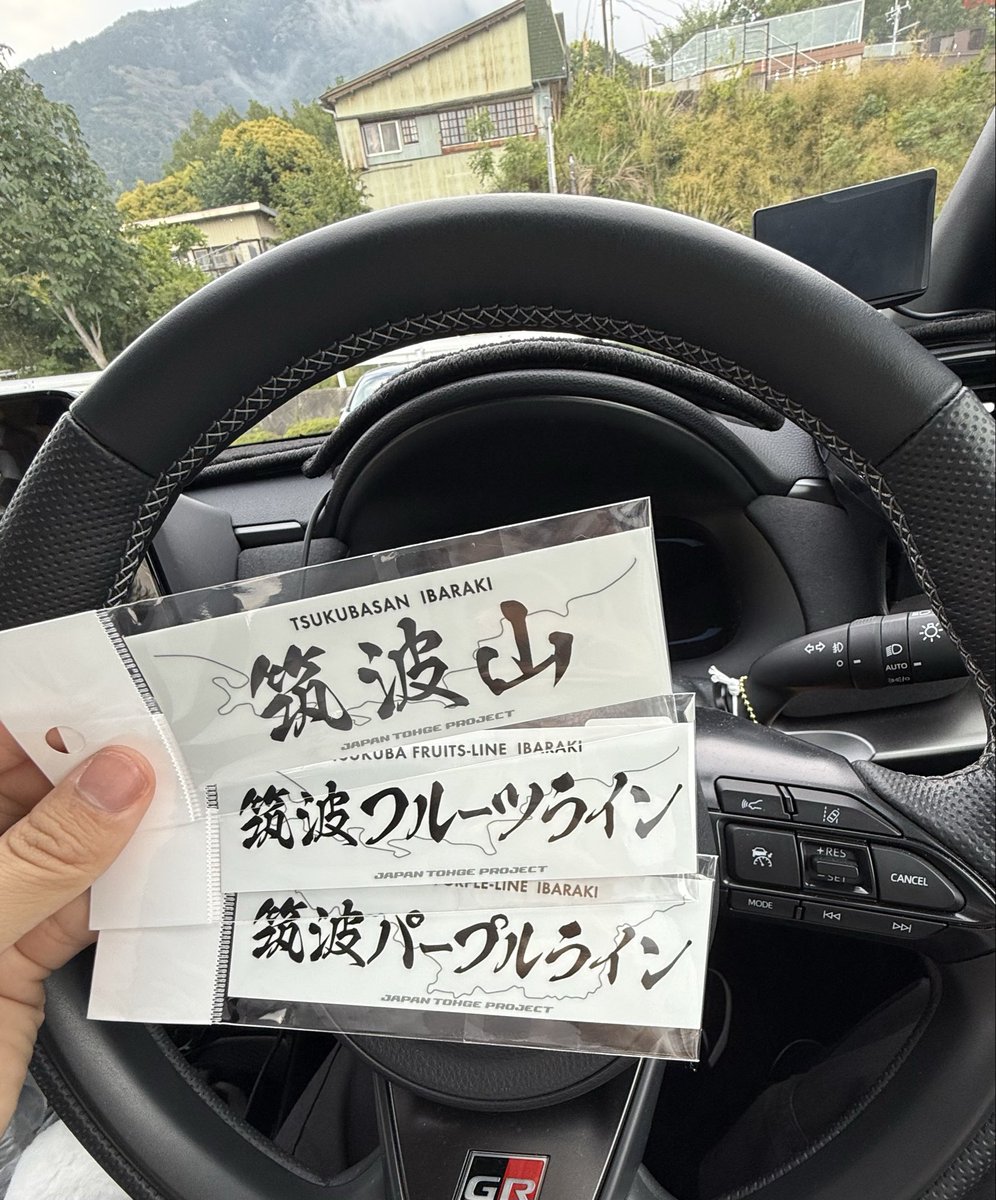 TSUKUBASAN IBARAKI
筑波山
JAPAN TOHGE PROJECT
FRUITS-LINE IBARAKI
筑波フルーツライン
JAPAN TOHGE PROJECT
IBARAKI
筑波パープルライン
JAPAN TOHGE PROJECT
AUTO
+RES
CANCEL
MODE
GR